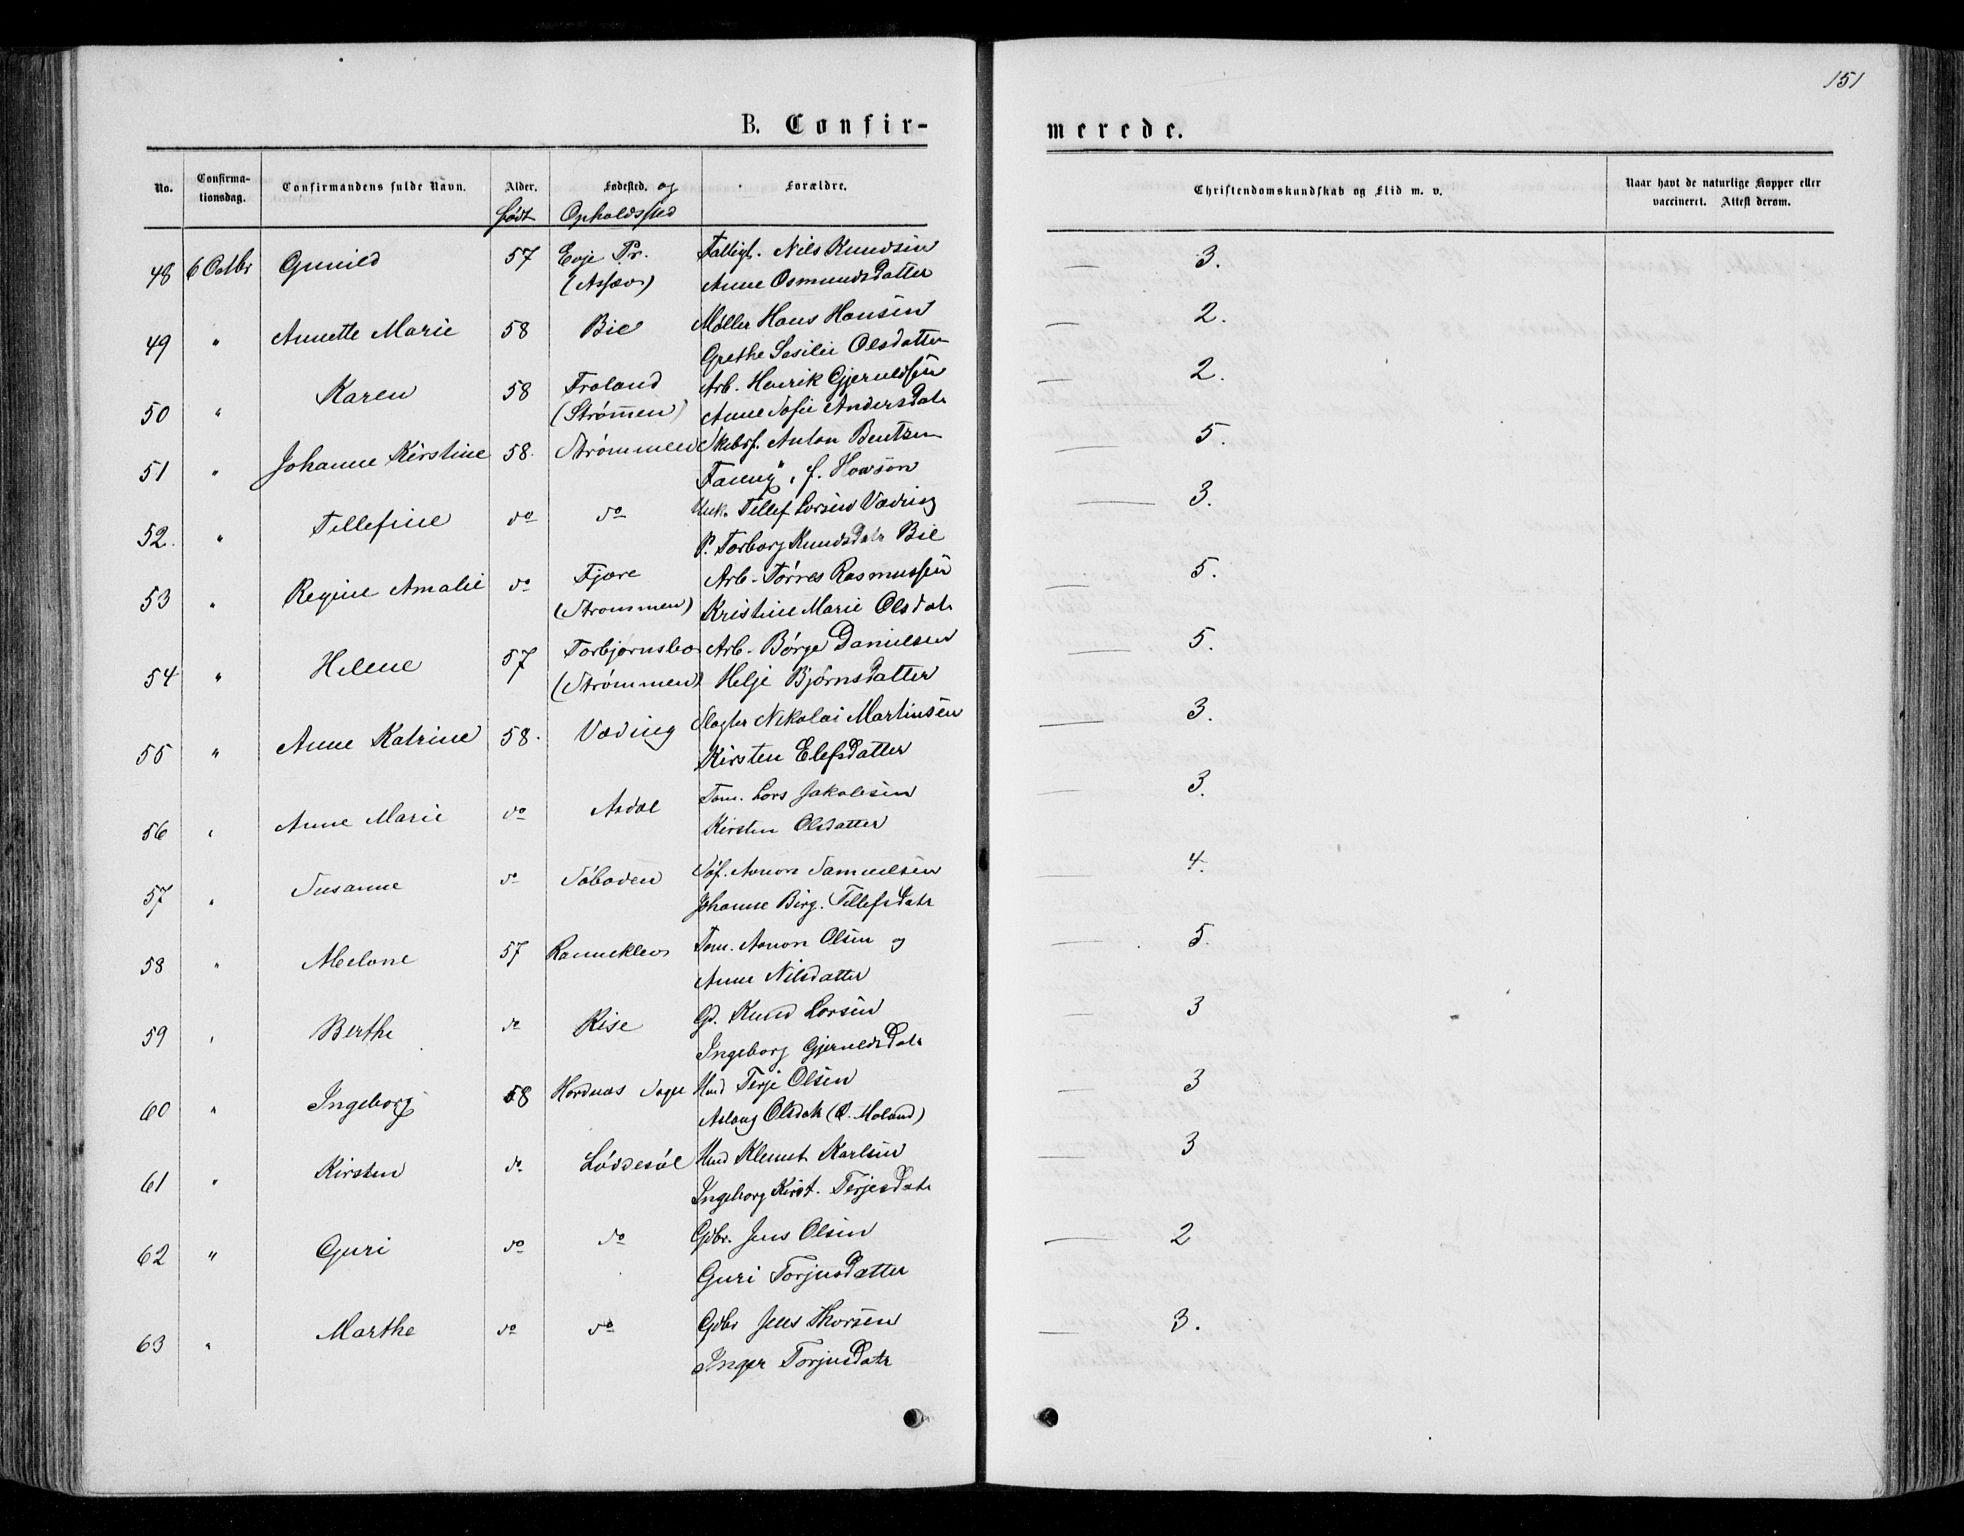 151
B. Confir-
merede.
No. Confirma-tionsdag. Confirmandens fulde Navn. Alder. Født Fødested. og Opholdssted Forældre. Christendomskundskab og Flid m. v. Naar havt de naturlige Kopper eller vaccineret. Attest derom.
48 6 Octbr Gunild 57 Evje Pr. Nils Knudsen 3.
Anne Osmundsdatter
49 " Annette Marie 58 Bie Møller Hans Hansen 2.
Grethe Olsdatter
50 " Karen 58 Froland Arb. Henrik Gjeruldsen 2.
(Strømmen) Anne Sofie Andersdatr
51 " Johanne Kirstine 58. Strømmen Anton Bentzen 5.
Fanny f.
52. " Tellefine do do Tellef Larsen Vædring 3.
P. Torborg Knudsdatr Bie
53 " Regine Amalie do Fjære Arb. Tørres Rasmussen 5.
(Strømmen) Kristine Marie Olsdatr
54 " Helene 57 Torbjørnsbo Arb. Børge Danielsen 5.
(Strømmen) Helje Bjørnsdatter
55 " Anne Katrine 58. Slagter Nikolai Martinsen 3.
Kirsten Elefsdatter
56 " Anne Marie do Asdal Tøm. Lars Jakobsen 3.
Kirsten Olsdatter
57 " Susanne do Søboden Søf. Aanon Samuelsen 4.
Johanne Birg. Tellefsdatr
58 " Abelone 57 Rannekleo Tøm. Aanon Olsen og 5.
Anne Nilsdatter
59 " Berthe do Rise Gd. Knud Larsen 3
Ingeborg Gjeruldsdatr
60 " Ingeborg 58 Hordnæs Sogn Hmd Terje Olsen 3
Aslaug Olsdatr (Ø. Moland)
61 " Kirsten do Løddesøl Hmd Klemet Karlsen 3
Ingeborg Kirst. Terjesdatr
62 " Guri do do Gdbr. Jens Olsen 2
Guri Torjusdatter
63 " Marthe do do Gdbr Jens Thorsen 3.
Inger Torjusdatr